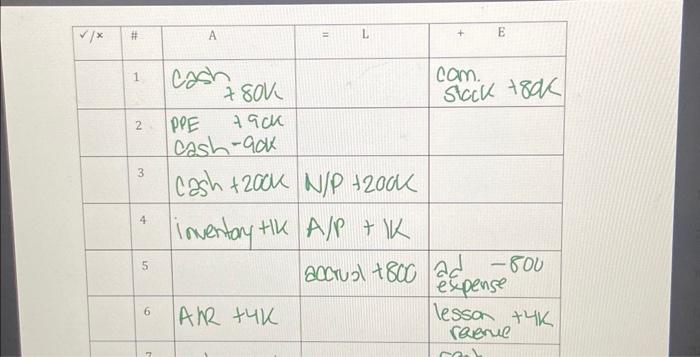 ✓/× # A = L + E
1 cash +80K com. stock +80K
2 PPE +90K
cash -90K
3 cash +200K N/P +200K
4 inventory +1K A/P + 1K
5 accrual +800 ad -800
expense
6 A/R +4K lesson +4K
revenue
7